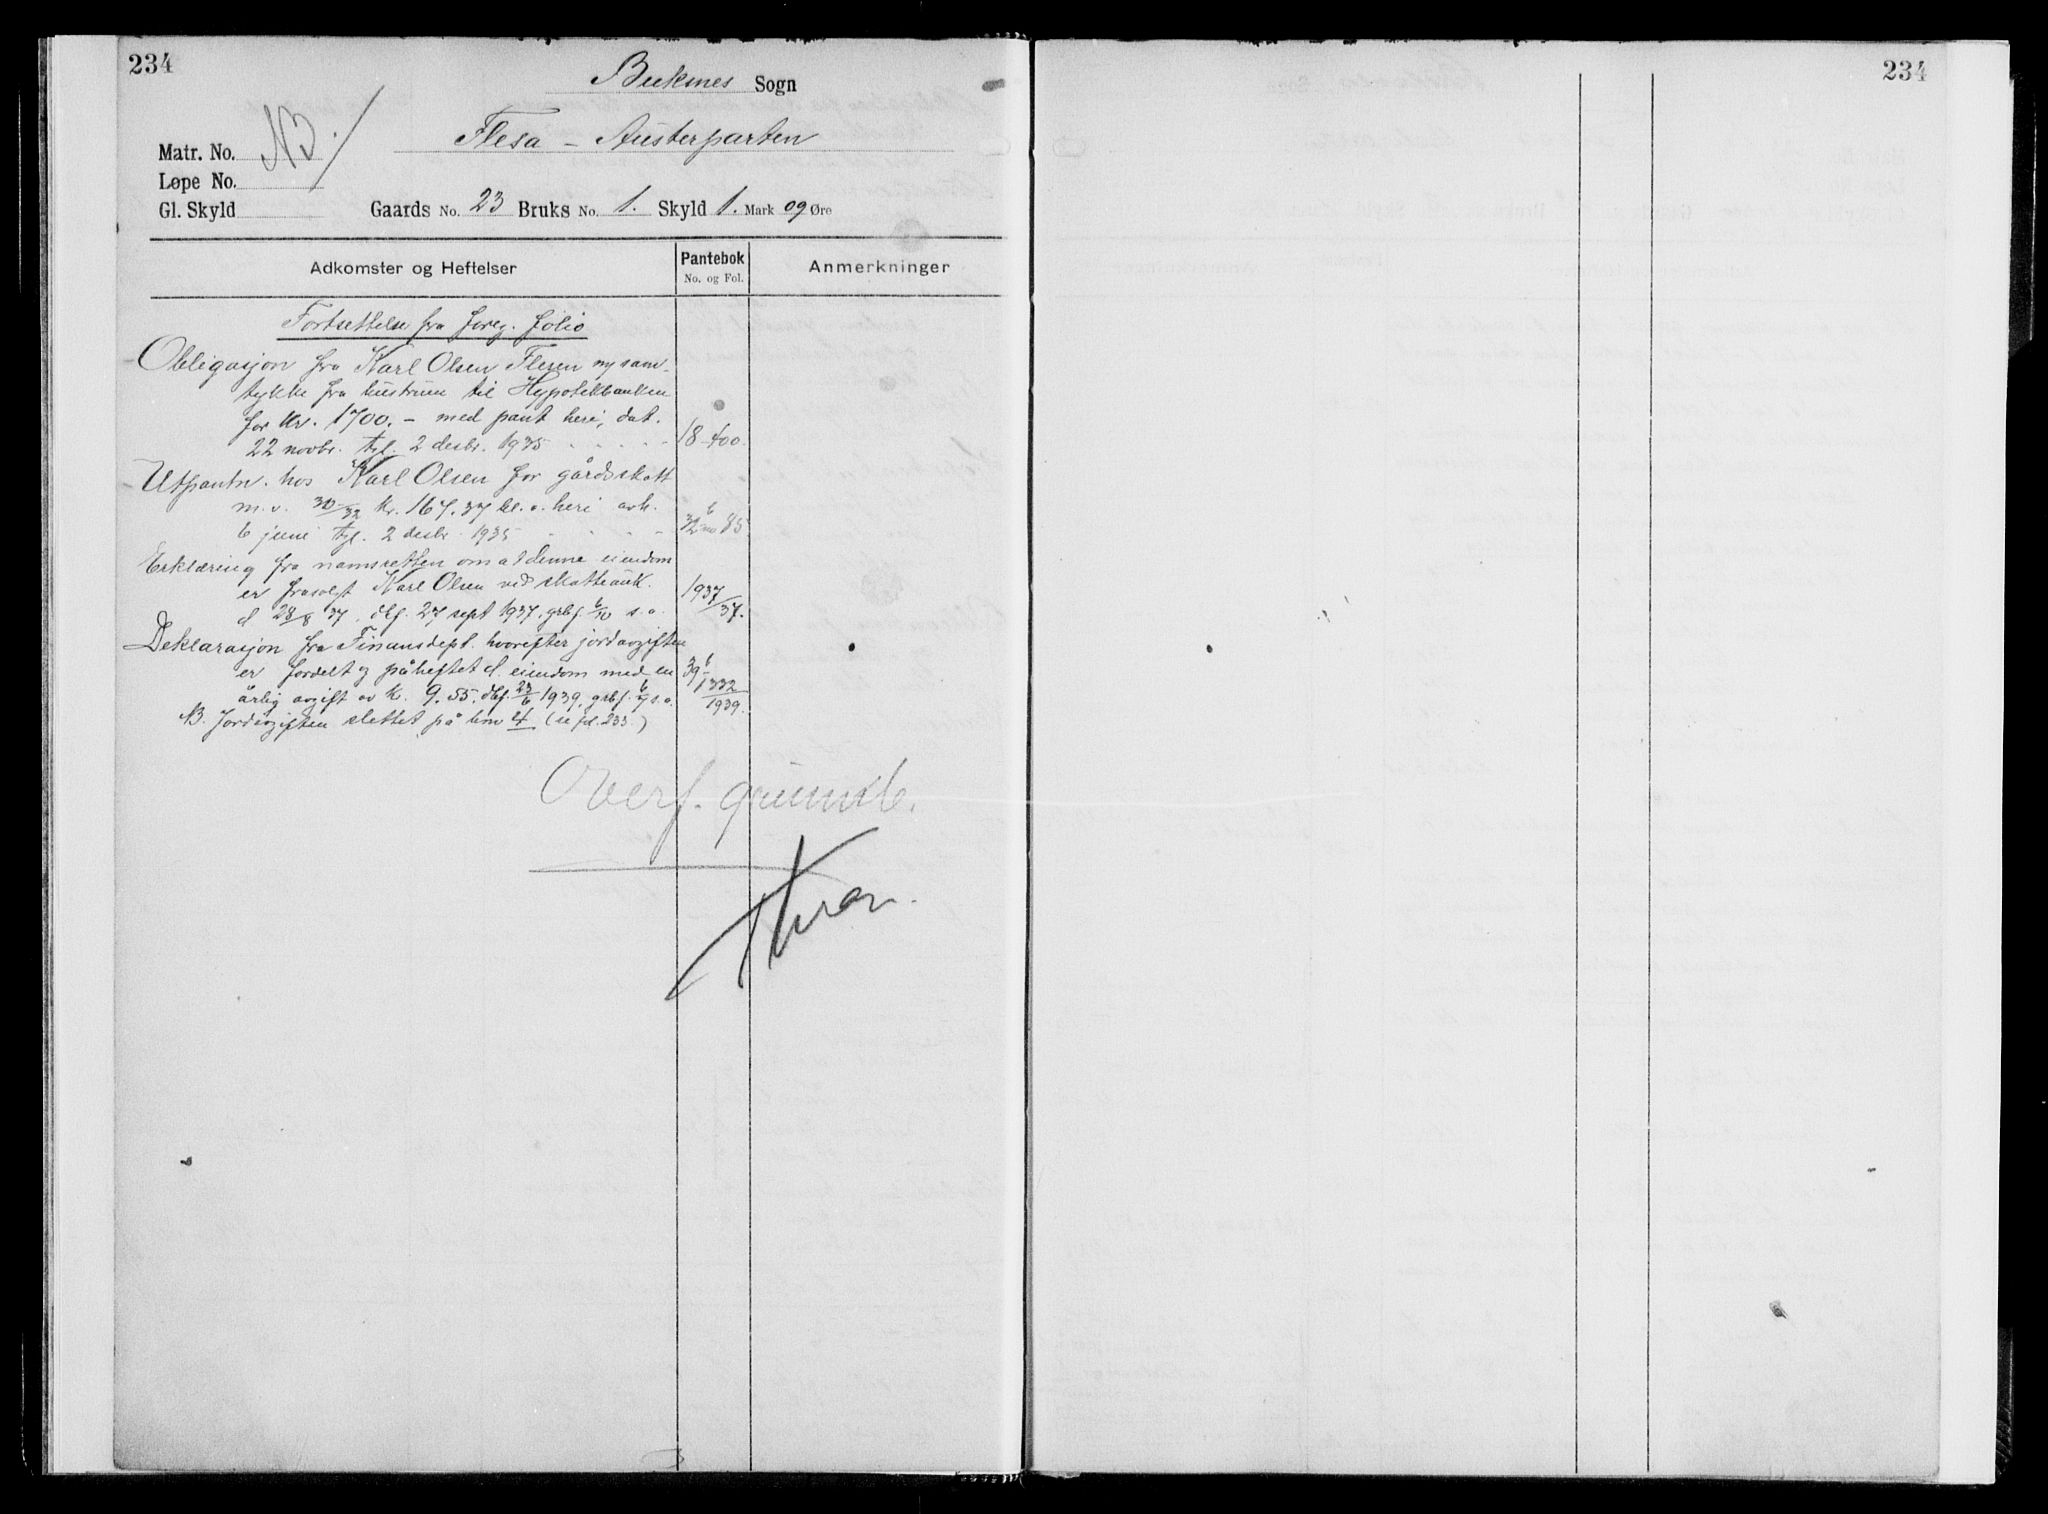 234
Buksnes Sogn
NB.
Flesa - Austerparten
Matr. No.
Løpe No.
Gl. Skyld Gaards No. 23 Bruks No. 1. Skyld 1. Mark 09 Øre
Adkomster og Heftelser Pantebok No. og Fol. Anmerkninger
Fortsettelse fra foreg. folio
Obligasjon fra Karl Olsen Flesen m/ sam-
tykke fra hustruen til Hypotekbanken
for kr. 1700.- med pant heri, dat.
22 novbr. tgl. 2 desbr. 1935 18-400.
Utpantn. hos Karl Olsen for gårdsskatt
m.v. 30/32 kr. 167.37 bl. a. heri avh.
6 juni tgl. 2 desbr. 1935 85
Erklæring fra namsretten om at denne eiendom
er frasolgt Karl Olsen ved skatteauk.
d 28/8 37. dbf. 27 sept 1937. grbf. 6/10 s.a. 1937/37.
Deklarasjon fra Finansdept. hvorefter jordavgiften
er fordelt og påheftet d. eiendom med en
årlig avgift av K. 9.55. dbf. 23/6 1939. grbf. s.a. 39 1332/1939.
NB. Jordavgiften slettet på bnr 4 (se fol. 233)
Overf. grunnb.
234